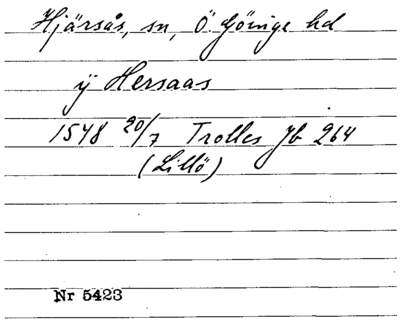 Hjärsås, sn, Ö Göinge hd
ÿ Hersaas
1548 20/7 Trolles Jb 264
(Lillö)
Nr 5423